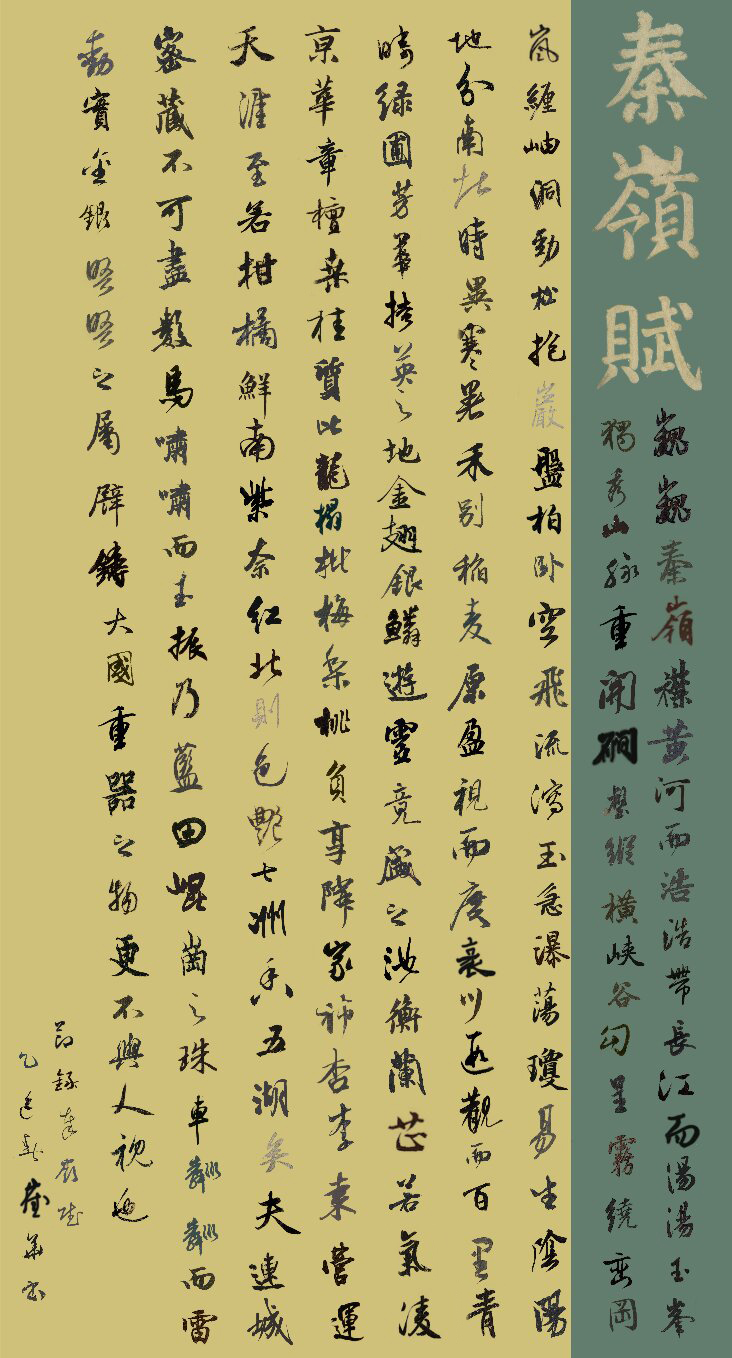 秦嶺賦
巍巍秦嶺襟黃河而浩浩帶長江而湯湯玉峯
獨秀山脉重開硐壑縱橫峽谷勾呈霧繞峦岡
嵐纏岫洞勁松抱巖盤柏卧空飛流瀉玉急瀑蕩瓊易生陰陽
地分南北時異寒暑禾別稲麦原盈視而廣袤川遐觀而百里青
疇緑圃芳菲揽英之地金翅銀鱗遊霓竟處之汝衡蘭芷若氣凌
京華章檀桑桂質比龍榻枇梅梨桃負享降家柿杏李棗營運
天涯至若柑橘鮮南紫奈紅北則色艷七洲香五湖矣夫連城
密蔵不可盡數馬嘯嘯而玉振乃藍田崐崗之珠車轔轔而雷
動實金銀熠熠之屬肆鑄大國重器之物更不與人視也
節録秦嶺賦